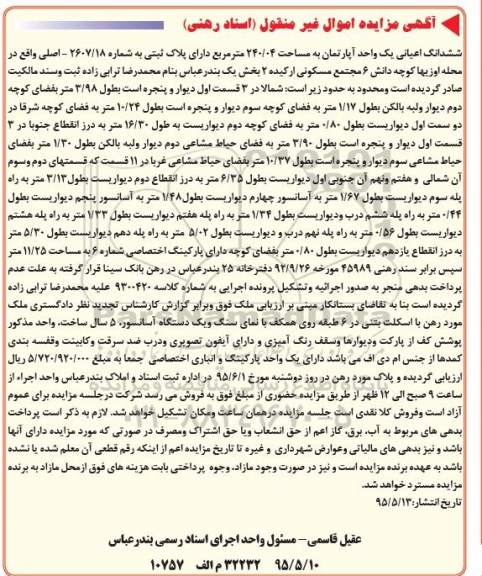 آگهی مزایده اموال غیر منقول (اسناد رهنی)
ششدانگ اعیانی یک واحد آپارتمان به مساحت ۲۴۰/۰۴ مترمربع دارای پلاک ثبتی به شماره ۲۶۰۷/۱۸ - اصلی واقع در
محله اوزیها کوچه دانش ۶ مجتمع مسکونی ارکیده ۲ بخش یک بندرعباس بنام محمدرضا ترابی زاده ثبت وسند مالکیت
صادر گردیده است ومحدود به حدود زیر است: شمالا در ۳ قسمت اول دیوار و پنجره است بطول ۳/۹۸ متر بفضای کوچه
دوم دیوار ولبه بالکن بطول ۱/۱۷ متر به فضای کوچه سوم دیوار و پنجره است بطول ۱۰/۲۴ متر به فضای کوچه شرقا در
دو سمت اول دیواریست بطول ۰/۸۰ متر به فضای کوچه دوم دیواریست به طول ۱۶/۳۰ متر به درز انقطاع جنوبا در ۳
قسمت اول دیوار و پنجره است بطول ۳/۹۰ متر به فضای حیاط مشاعی دوم دیوار ولبه بالکن بطول ۱/۳۰ متر بفضای
حیاط مشاعی سوم دیوار و پنجره است بطول ۱۰/۳۷ متر بفضای حیاط مشاعی غربا در ۱۱ قسمت که قسمتهای دوم وسوم
آن شمالی و هفتم ونهم آن جنوبی اول دیواریست بطول ۶/۳۵ متر به درز انقطاع دوم دیواریست بطول۳/۱۳ متر به راه
پله سوم دیواریست بطول ۱/۶۷ متر به آسانسور چهارم دیواریست بطول۱/۴۸ متر به آسانسور پنجم دیواریست بطول
۰/۴۴ متر به راه پله ششم درب ودیواریست بطول ۱/۳۴ متر به راه پله هفتم دیواریست بطول ۱/۳۳ متر به راه پله هشتم
دیواریست بطول ۰/۵۶ متر به راه پله نهم درب و دیواریست بطول ۵/۰۲ متر به راه پله دهم دیواریست بطول ۵/۳۰ متر
به درز انقطاع یازدهم دیواریست بطول ۰/۸۰ متر بفضای کوچه دارای پارکینگ اختصاصی شماره ۶ به مساحت ۱۱/۲۵ متر
سپس برابر سند رهنی ۴۵۹۸۹ مورخه ۹۲/۹/۲۶ دفترخانه ۲۵ بندرعباس در رهن بانک سینا قرار گرفته به علت عدم
پرداخت بدهی منجر به صدور اجرائیه وتشکیل پرونده اجرایی به شماره کلاسه ۹۳۰۰۴۲۰ علیه محمدرضا ترابی زاده
گردیده است بنا به تقاضای بستانکار مبنی بر ارزیابی ملک فوق وبرابر گزارش کارشناس تجدید نظر دادگستری ملک
مورد رهن با اسکلت بتنی در ۶ طبقه روی همکف با نمای سنگ ویک دستگاه آسانسور، ۵ سال ساخت، واحد مذکور
پوشش کف از پارکت ودیوارها وسقف رنگ آمیزی و دارای آیفون تصویری ودرب ضد سرقت وکابینت وقفسه بندی
کمدها از جنس ام دی اف می باشد دارای یک واحد پارکینگ و انباری اختصاصی جمعا به مبلغ ۵/۷۲۰/۹۲۰/۰۰۰ ریال
ارزیابی گردیده و پلاک مورد رهن در روز دوشنبه مورخ ۹۵/۶/۱ دراداره ثبت اسناد و املاک بندرعباس واحد اجراء از
ساعت ۹ صبح الی ۱۲ ظهر از طریق مزایده حضوری از مبلغ فوق به فروش می رسد شرکت درجلسه مزایده برای عموم
آزاد است وفروش کلا نقدی است جلسه مزایده درهمان ساعت ومکان تشکیل خواهد شد. لازم به ذکر است پرداخت
بدهی های مربوط به آب، برق، گاز اعم از حق انشعاب ویا حق اشتراک ومصرف در صورتی که مورد مزایده دارای آنها
باشد و نیز بدهی های مالیاتی وعوارض شهرداری و غیره تا تاریخ مزایده اعم از اینکه رقم قطعی آن معلم شده یا نشده
باشد به عهده برنده مزایده است و نیز در صورت وجود مازاد، وجوه پرداختی بابت هزینه های فوق ازمحل مازاد به برنده
مزایده مسترد خواهد شد.
تاریخ انتشار:۹۵/۵/۱۳
عقیل قاسمی- مسئول واحد اجرای اسناد رسمی بندرعباس
۹۵/۵/۱۰ ۳۲۲۳۲ م الف ۱۰۷۵۷